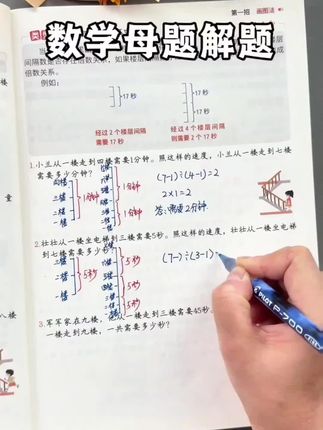 第一招 画图法
数学母题解题
间隔数是否存在倍数关系，如果楼层间隔
倍数关系。
例如：
17秒
17秒
17秒
经过2个楼层间隔
需要17秒
经过4个楼层间隔
则需要2个17秒
1.小兰从一楼走到四楼需要1分钟。照这样的速度，小兰从一楼走到七楼
需要多少分钟？
四楼
三楼
二楼
一楼
1分钟
1分钟
1分钟
(7-1)÷(4-1)=2
2×1=2
答:需要2分钟.
2.壮壮从一楼坐电梯到三楼需要5秒。照这样的速度，壮壮从一楼坐电梯
到七楼需要多少秒？
三楼
二楼
一楼
5秒
5秒
5秒
5秒
(7-1)÷(3-1)
3.军军家在九楼，
从一楼走到三楼需要45秒。
一楼走到九楼，一共需要多少秒？
PILOT
P-700